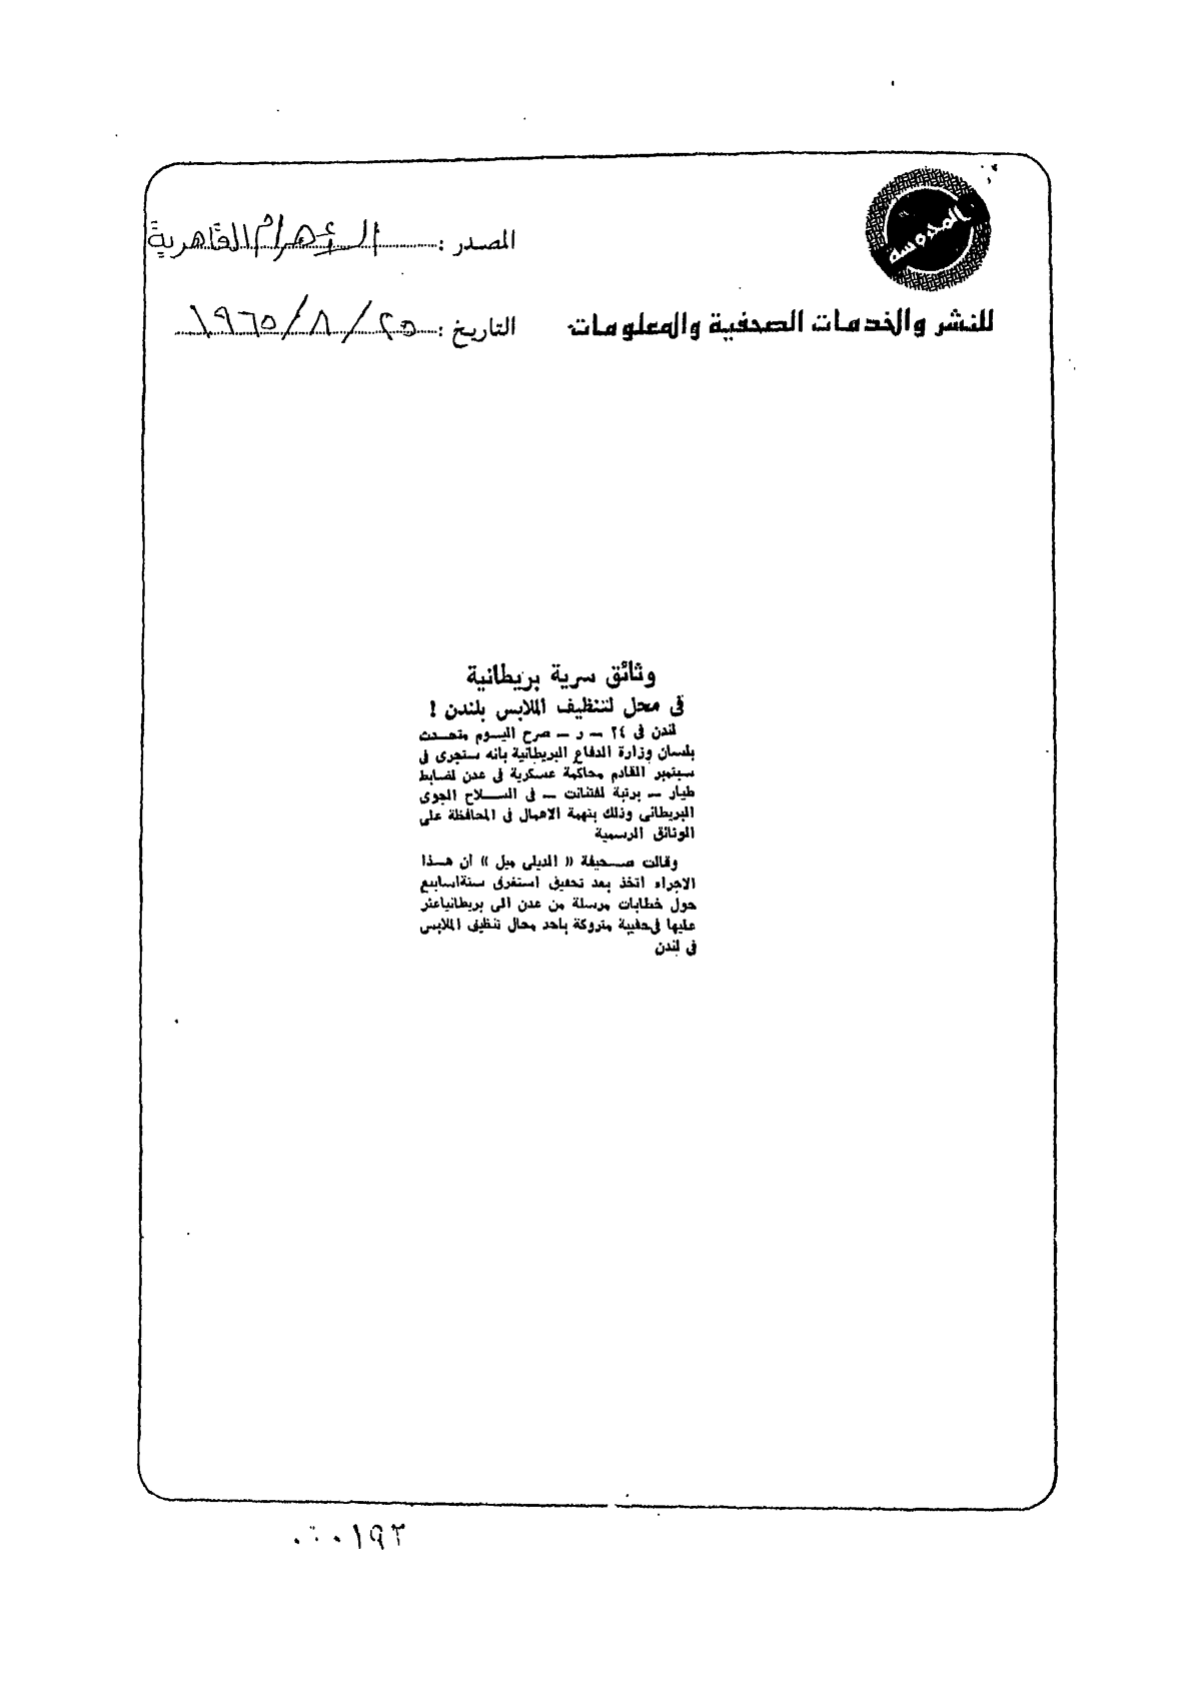 المحروسة
المصدر : الأهرام القاهرية
للنشر والخدمات الصحفية والمعلومات
التاريخ : ٢٥ / ٨ / ١٩٦٥
وثائق سرية بريطانية
فى محل لتنظيف الملابس بلندن !
لندن فى ٢٤ ـ ر ـ صرح اليوم متحدث
بلسان وزارة الدفاع البريطانية بانه ستجرى فى
سبتمبر القادم محاكمة عسكرية فى عدن لضابط
طيار ـ برتبة لفتنانت ـ فى السلاح الجوى
البريطانى وذلك بتهمة الاهمال فى المحافظة على
الوثائق الرسمية
وقالت صحيفة « الديلى ميل » ان هذا
الاجراء اتخذ بعد تحقيق استغرق ستة اسابيع
حول خطابات مرسلة من عدن الى بريطانيا عثر
عليها فى حقيبة متروكة باحد محال تنظيف الملابس
فى لندن